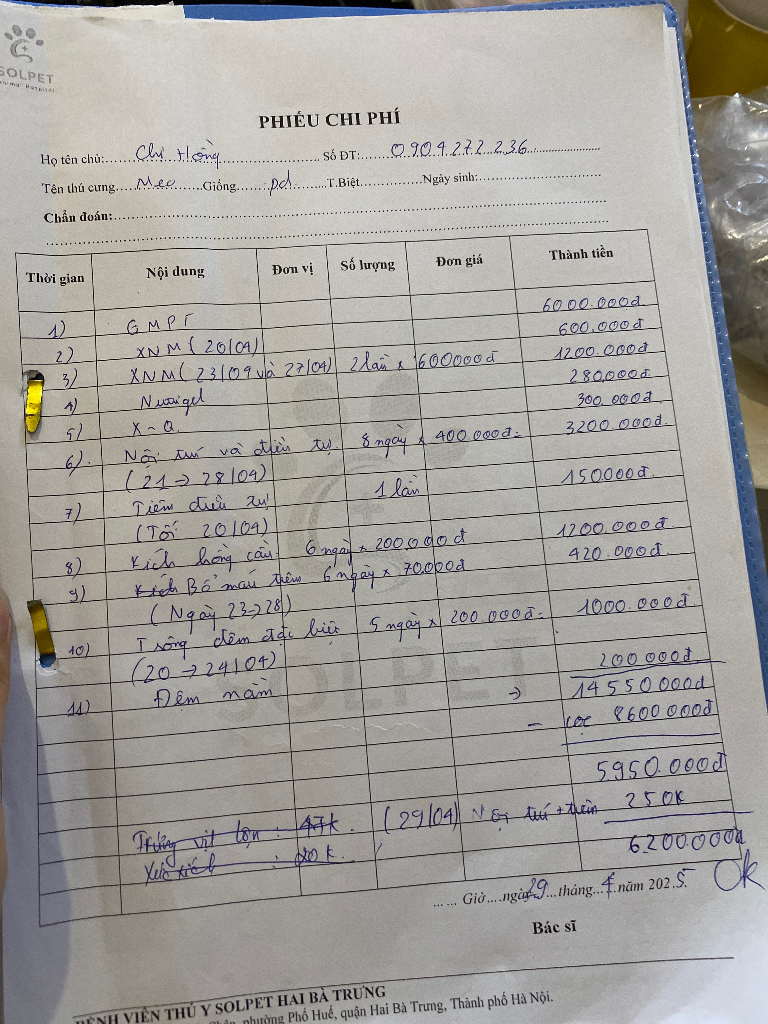 SOLPET
Animal Hospital
PHIẾU CHI PHÍ
Họ tên chủ: Chị Hồng Số ĐT: 0904.272.236
Tên thú cưng Mèo Giống pd T.Biệt Ngày sinh:
Chẩn đoán:
Thời gian Nội dung Đơn vị Số lượng Đơn giá Thành tiền
1) GMPT 6000.000đ
2) XNM (20/04) 600.000đ
3) XNM (23/04 và 27/04) 2 lần x 600000đ 1200.000đ
4) 280,000đ
5) X-Q 300.000đ
6) Nội trú và điều trị 8 ngày x 400.000đ = 3200.000đ
(21 → 28/04)
7) Tiêm điều trị 1 lần 150000đ
(Tối 20/04)
8) Kích hồng cầu 6 ngày x 200,000đ 1200.000đ
9) Kích Bổ máu tiêm 6 ngày x 70,000đ 420.000đ
(Ngày 23→28)
10) Trông đêm đặc biệt 5 ngày x 200.000đ = 1000.000đ
(20 → 24/04)
11) Đệm nằm 200000đ
→ 14550000đ
- cọc 8600000đ
5950.000đ
Trứng vịt lộn : 47k. (29/04) Nội trú + tiêm 250k
Xúc xích : 20k. 6200000đ
Ok
Giờ....ngày 29 tháng 4 năm 2025.
Bác sĩ
SOLPET
BỆNH VIỆN THÚ Y SOLPET HAI BÀ TRƯNG
phường Phố Huế, quận Hai Bà Trưng, Thành phố Hà Nội.